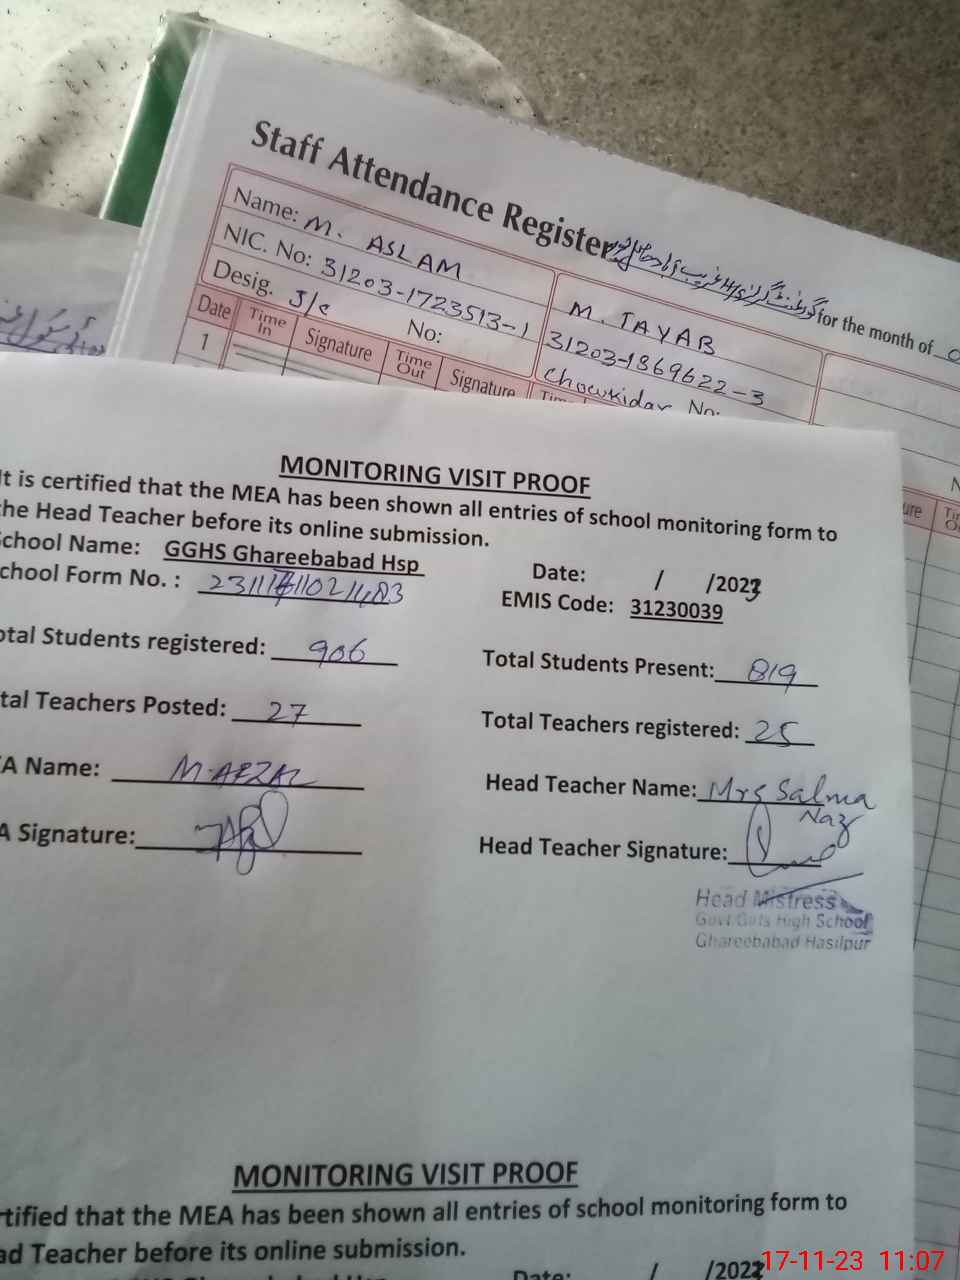 Staff Attendance Register
for the month of
Name: M. ASLAM
NIC. No: 31203-1723513-1
Desig. J/c No:
M. TAYAB
31203-1869622-3
Chowkidar No:
Date Time In Signature Time Out Signature
1
MONITORING VISIT PROOF
It is certified that the MEA has been shown all entries of school monitoring form to
the Head Teacher before its online submission.
School Name: GGHS Ghareebabad Hsp
Date: / /2023
School Form No. :
EMIS Code: 31230039
otal Students registered: 906
Total Students Present: 819
tal Teachers Posted: 27
Total Teachers registered: 25
A Name: M.AFZAL
Head Teacher Name: Mrs Salma Naz
A Signature:
Head Teacher Signature:
Head Mistress
Govt Girls High School
Ghareebabad Hasilpur
MONITORING VISIT PROOF
rtified that the MEA has been shown all entries of school monitoring form to
ad Teacher before its online submission.
Date: / /202
17-11-23 11:07